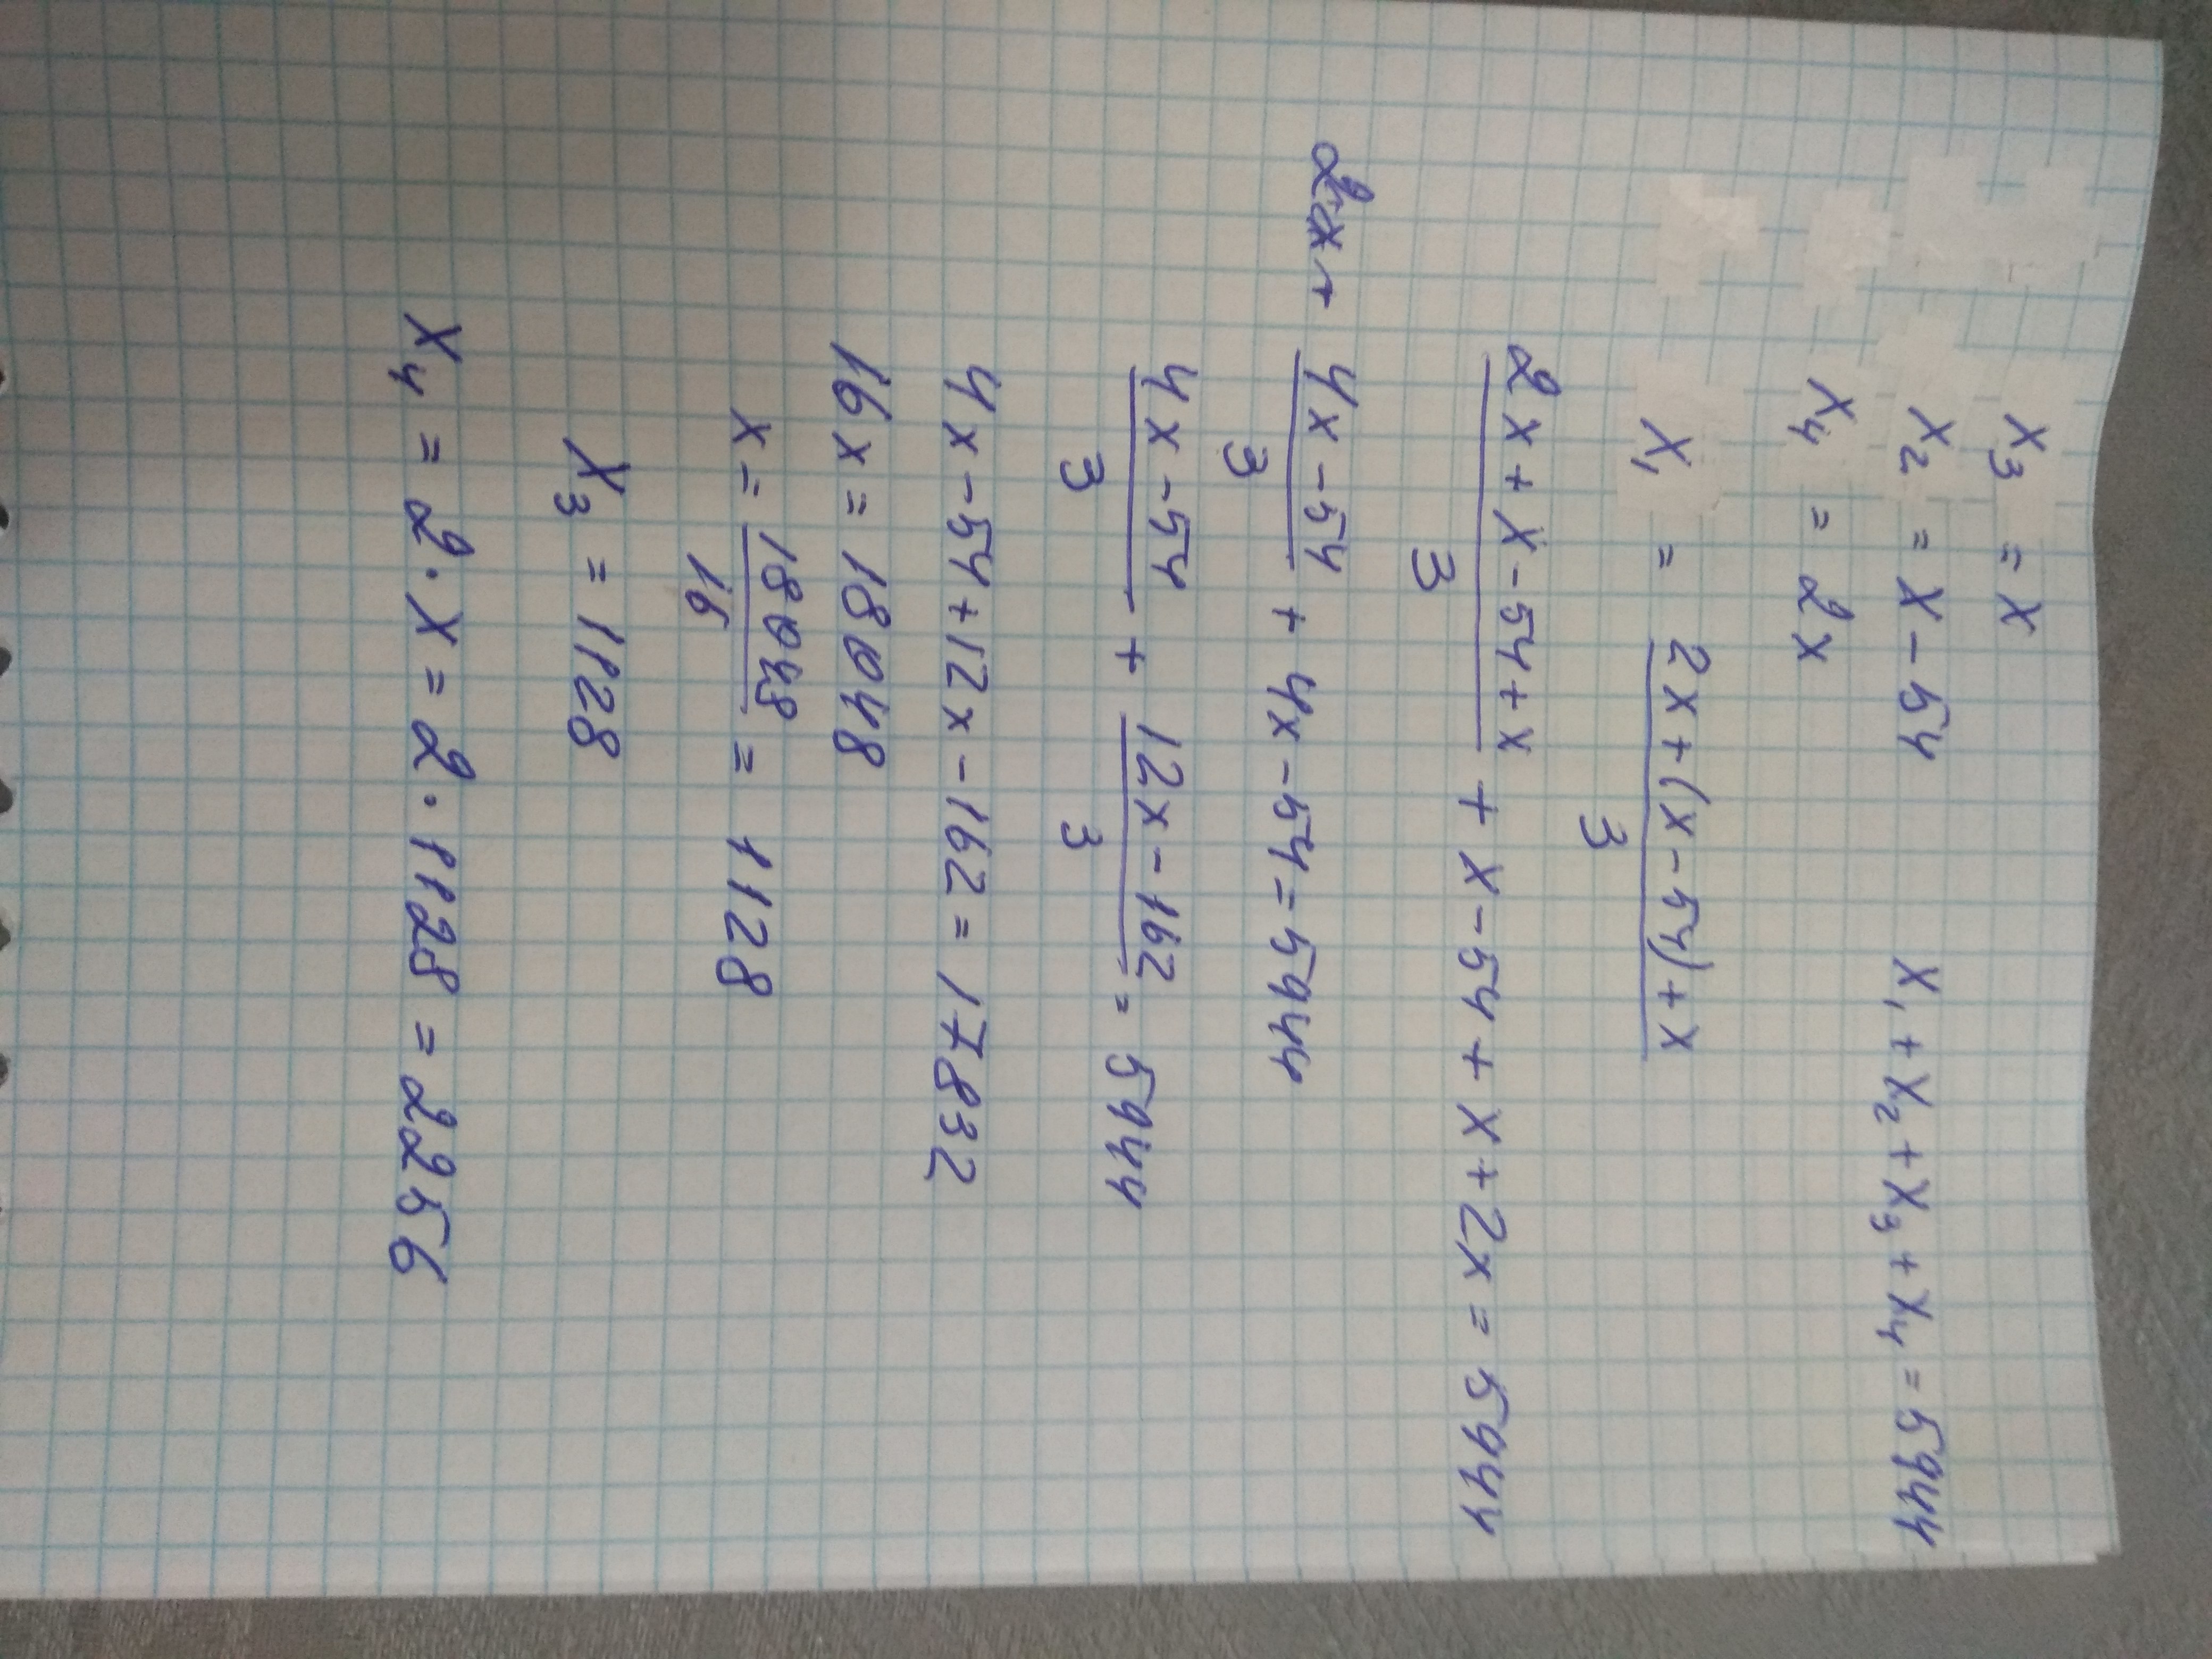 X₃ = X
X₂ = X - 54 X₁ + X₂ + X₃ + X₄ = 5944
X₄ = 2X
X₁ = (2X + (X - 54) + X) / 3
(2X + X - 54 + X) / 3 + X - 54 + X + 2X = 5944
(4X - 54) / 3 + 4X - 54 = 5944
(4X - 54) / 3 + (12X - 162) / 3 = 5944
4X - 54 + 12X - 162 = 17832
16X = 18048
X = 18048 / 16 = 1128
X₃ = 1128
X₄ = 2 · X = 2 · 1128 = 2256